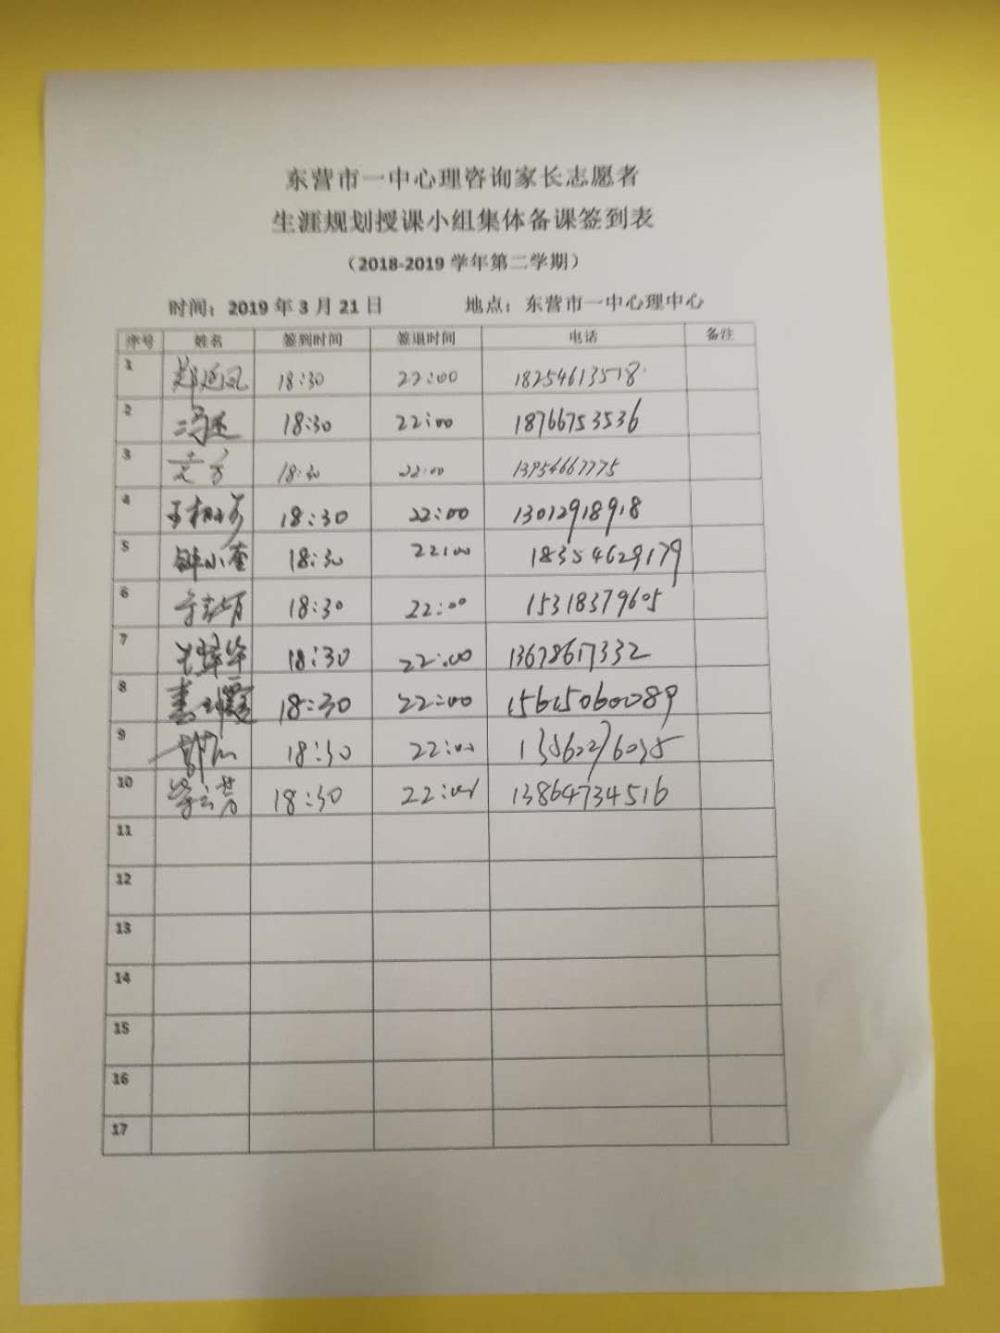 东营市一中心理咨询家长志愿者
生涯规划授课小组集体备课签到表
（2018-2019 学年第二学期）
时间：2019 年 3 月 21 日 地点：东营市一中心理中心
序号 姓名 签到时间 签退时间 电话 备注
1 郑延凤 18:30 22:00 18254613518
2 18:30 22:00 18766753536
3 18:30 22:00 13954667775
4 18:30 22:00 13012918918
5 钟小奎 18:30 22:00 18354629179
6 18:30 22:00 15318379605
7 18:30 22:00 13678617332
8 18:30 22:00 15615060089
9 18:30 22:00
10 18:30 22:00 13864734516
11
12
13
14
15
16
17